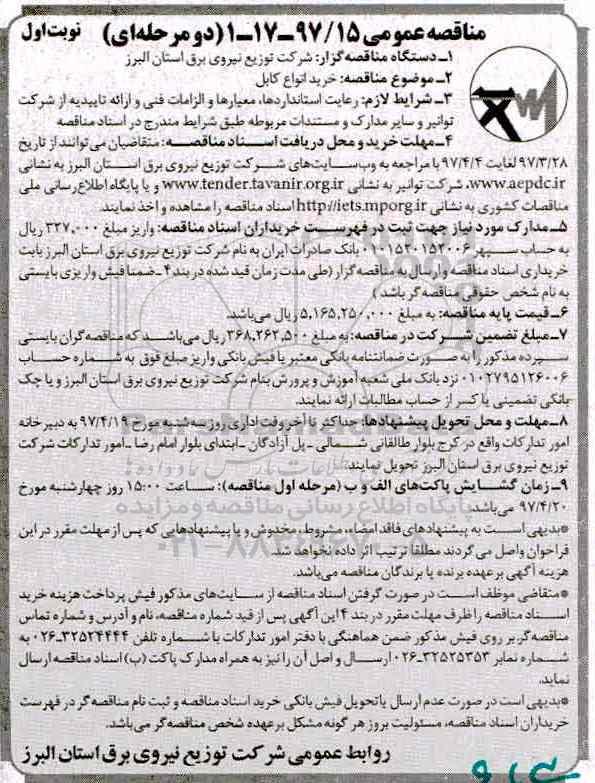 مناقصه عمومی ۹۷/۱۵-۱۷-۱ (دو مرحله‌ای) نوبت اول
۱ـ دستگاه مناقصه‌گزار: شرکت توزیع نیروی برق استان البرز
۲ـ موضوع مناقصه: خرید انواع کابل
۳ـ شرایط لازم: رعایت استانداردها، معیارها و الزامات فنی و ارائه تاییدیه از شرکت
توانیر و سایر مدارک و مستندات مربوطه طبق شرایط مندرج در اسناد مناقصه
۴ـ مهلت خرید و محل دریافت اسناد مناقصه: متقاضیان می‌توانند از تاریخ
۹۷/۳/۲۸ لغایت ۹۷/۴/۴ با مراجعه به وب‌سایت‌های شرکت توزیع نیروی برق استان البرز به نشانی
www.aepdc.ir، شرکت توانیر به نشانی www.tender.tavanir.org.ir و یا پایگاه اطلاع رسانی ملی
مناقصات کشوری به نشانی http://iets.mporg.ir اسناد مناقصه را مشاهده و اخذ نمایند.
۵ـ مدارک مورد نیاز جهت ثبت در فهرست خریداران اسناد مناقصه: واریز مبلغ ۳۲۷,۰۰۰ ریال
به حساب سپهر بانک صادرات ایران به نام شرکت توزیع نیروی برق استان البرز بابت
خریداری اسناد مناقصه و ارسال به مناقصه گزار (طی مدت زمان قید شده در بند ۴ـ ضمنا فیش واریزی بایستی
به نام شخص حقوقی مناقصه گر باشد)
۶ـ قیمت پایه مناقصه: به مبلغ ۵,۱۶۵,۲۵۰,۰۰۰ ریال می‌باشد.
۷ـ مبلغ تضمین شرکت در مناقصه: به مبلغ ۳۶۸,۲۶۲,۵۰۰ ریال می‌باشد که مناقصه گران بایستی
سپرده مذکور را به صورت ضمانتنامه بانکی معتبر یا فیش بانکی واریز مبلغ فوق به شماره حساب
۰۱۰۲۷۹۵۱۲۶۰۰۶ نزد بانک ملی شعبه آموزش و پرورش بنام شرکت توزیع نیروی برق استان البرز و یا چک
بانکی تضمینی یا کسر از حساب مطالبات ارائه نمایند.
۸ـ مهلت و محل تحویل پیشنهادها: حداکثر تا آخر وقت اداری روز سه‌شنبه مورخ ۹۷/۴/۱۹ به دبیرخانه
امور تدارکات واقع در کرج بلوار طالقانی شمالی ـ پل آزادگان ـ ابتدای بلوار امام رضا ـ امور تدارکات شرکت
توزیع نیروی برق استان البرز تحویل نمایند.
۹ـ زمان گشایش پاکت‌های الف و ب (مرحله اول مناقصه): ساعت ۱۵:۰۰ روز چهارشنبه مورخ
۹۷/۴/۲۰ می‌باشد.
*بدیهی است به پیشنهادهای فاقد امضاء، مشروط، مخدوش و یا پیشنهادهایی که پس از مهلت مقرر در این
فراخوان واصل می گردند مطلقا ترتیب اثر داده نخواهد شد.
هزینه آگهی بر عهده برنده یا برندگان مناقصه می‌باشد.
*متقاضی موظف است در صورت گرفتن اسناد مناقصه از سایت‌های مذکور فیش پرداخت هزینه خرید
اسناد مناقصه را ظرف مهلت مقرر در بند ۴ این آگهی پس از قید شماره مناقصه، نام و آدرس و شماره تماس
مناقصه‌گر بر روی فیش مذکور ضمن هماهنگی با دفتر امور تدارکات با شماره تلفن ۳۲۵۲۴۴۴۴-۰۲۶ به
شماره نمابر ۳۲۵۲۵۳۵۳-۰۲۶ ارسال و اصل آن را نیز به همراه مدارک پاکت (ب) اسناد مناقصه ارسال
نماید.
*بدیهی است در صورت عدم ارسال یا تحویل فیش بانکی خرید اسناد مناقصه و ثبت نام مناقصه گر در فهرست
خریداران اسناد مناقصه، مسئولیت بروز هر گونه مشکل بر عهده شخص مناقصه‌گر می‌باشد.
روابط عمومی شرکت توزیع نیروی برق استان البرز